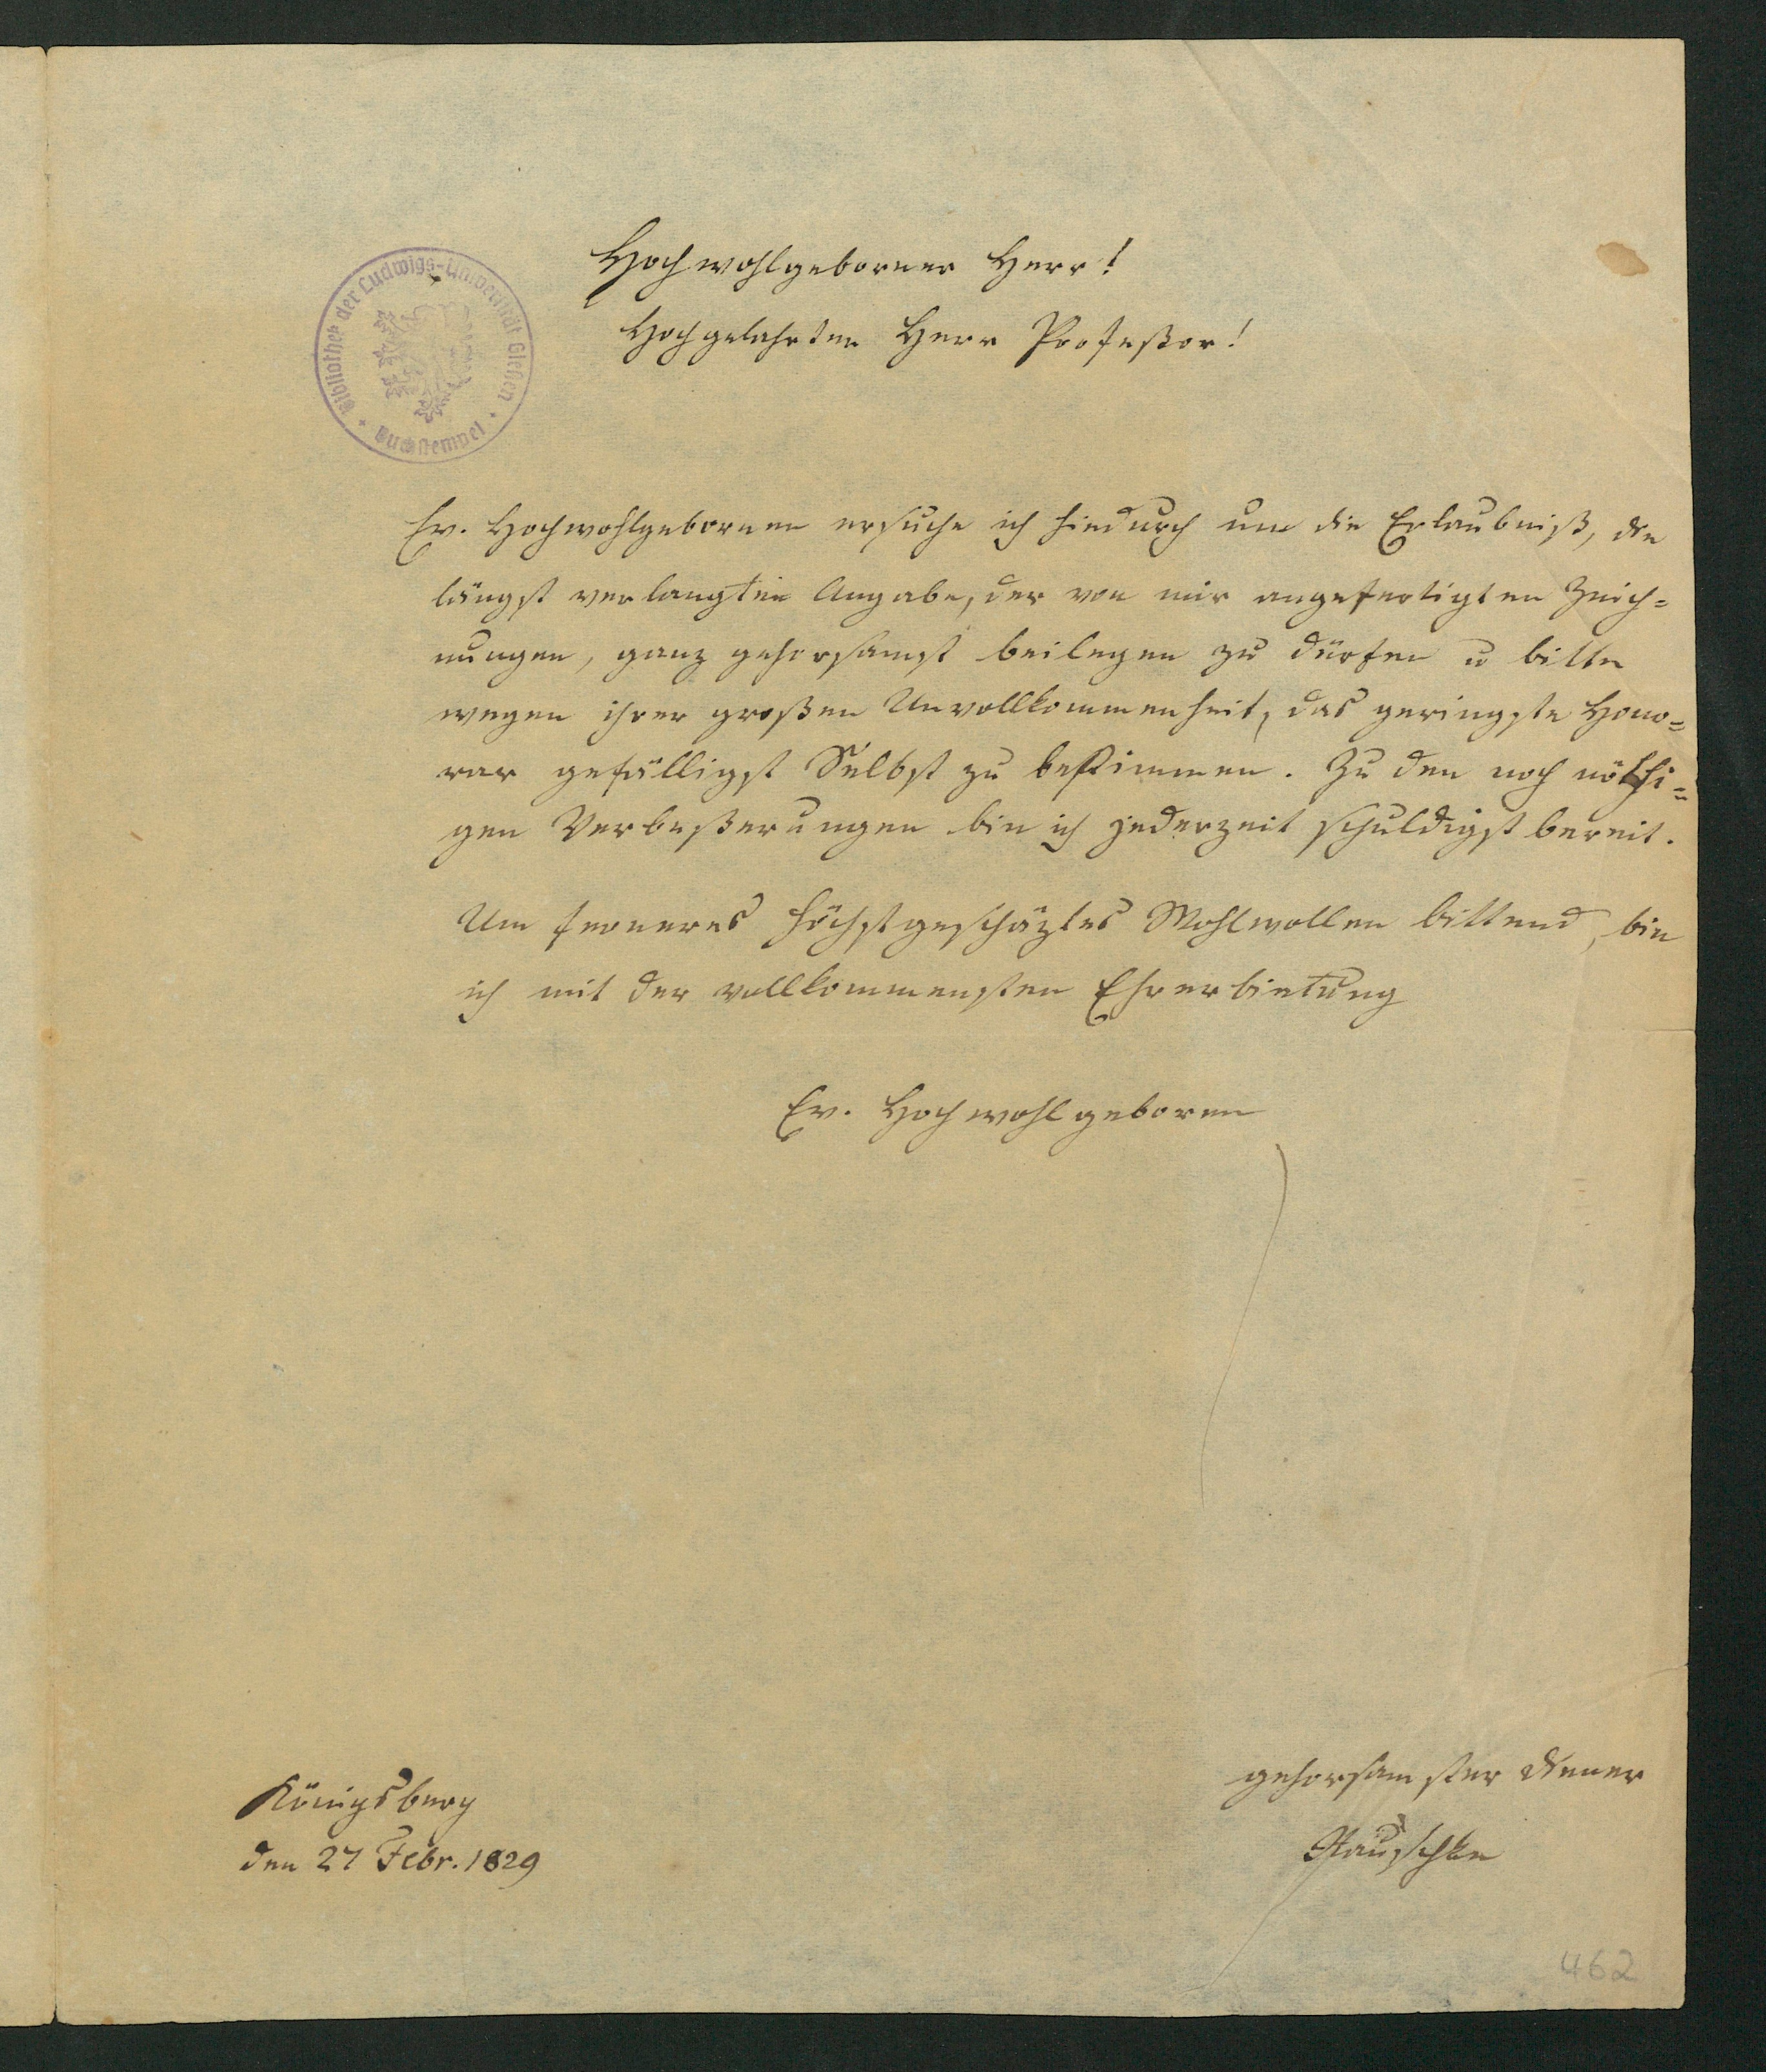 Hochwohlgeborner Herr!
Hochgelahrter Herr Profeßor!
Bibliothek der Ludwigs-Universität Gießen
Buchstempel
Ew. Hochwohlgebornen ersuche ich hiedurch um die Erlaubniß, die
längst verlangten Angabe, der von mir angefertigten Zeich=
nungen, ganz gehorsamst beilegen zu dürfen u bitte
wegen ihrer großen Unvollkommenheit, das geringste Hono=
rar gefälligst Selbst zu bestimmen. Zu den noch nöthi=
gen Verbeßerungen bin ich jederzeit schuldigst bereit.
Um ferneres höchstgeschäztes Wohlwollen bittend, bin
ich mit der vollkommensten Ehrerbietung
Ew. Hochwohlgeboren
gehorsamster Diener
Königsberg
den 27 Febr. 1829
462